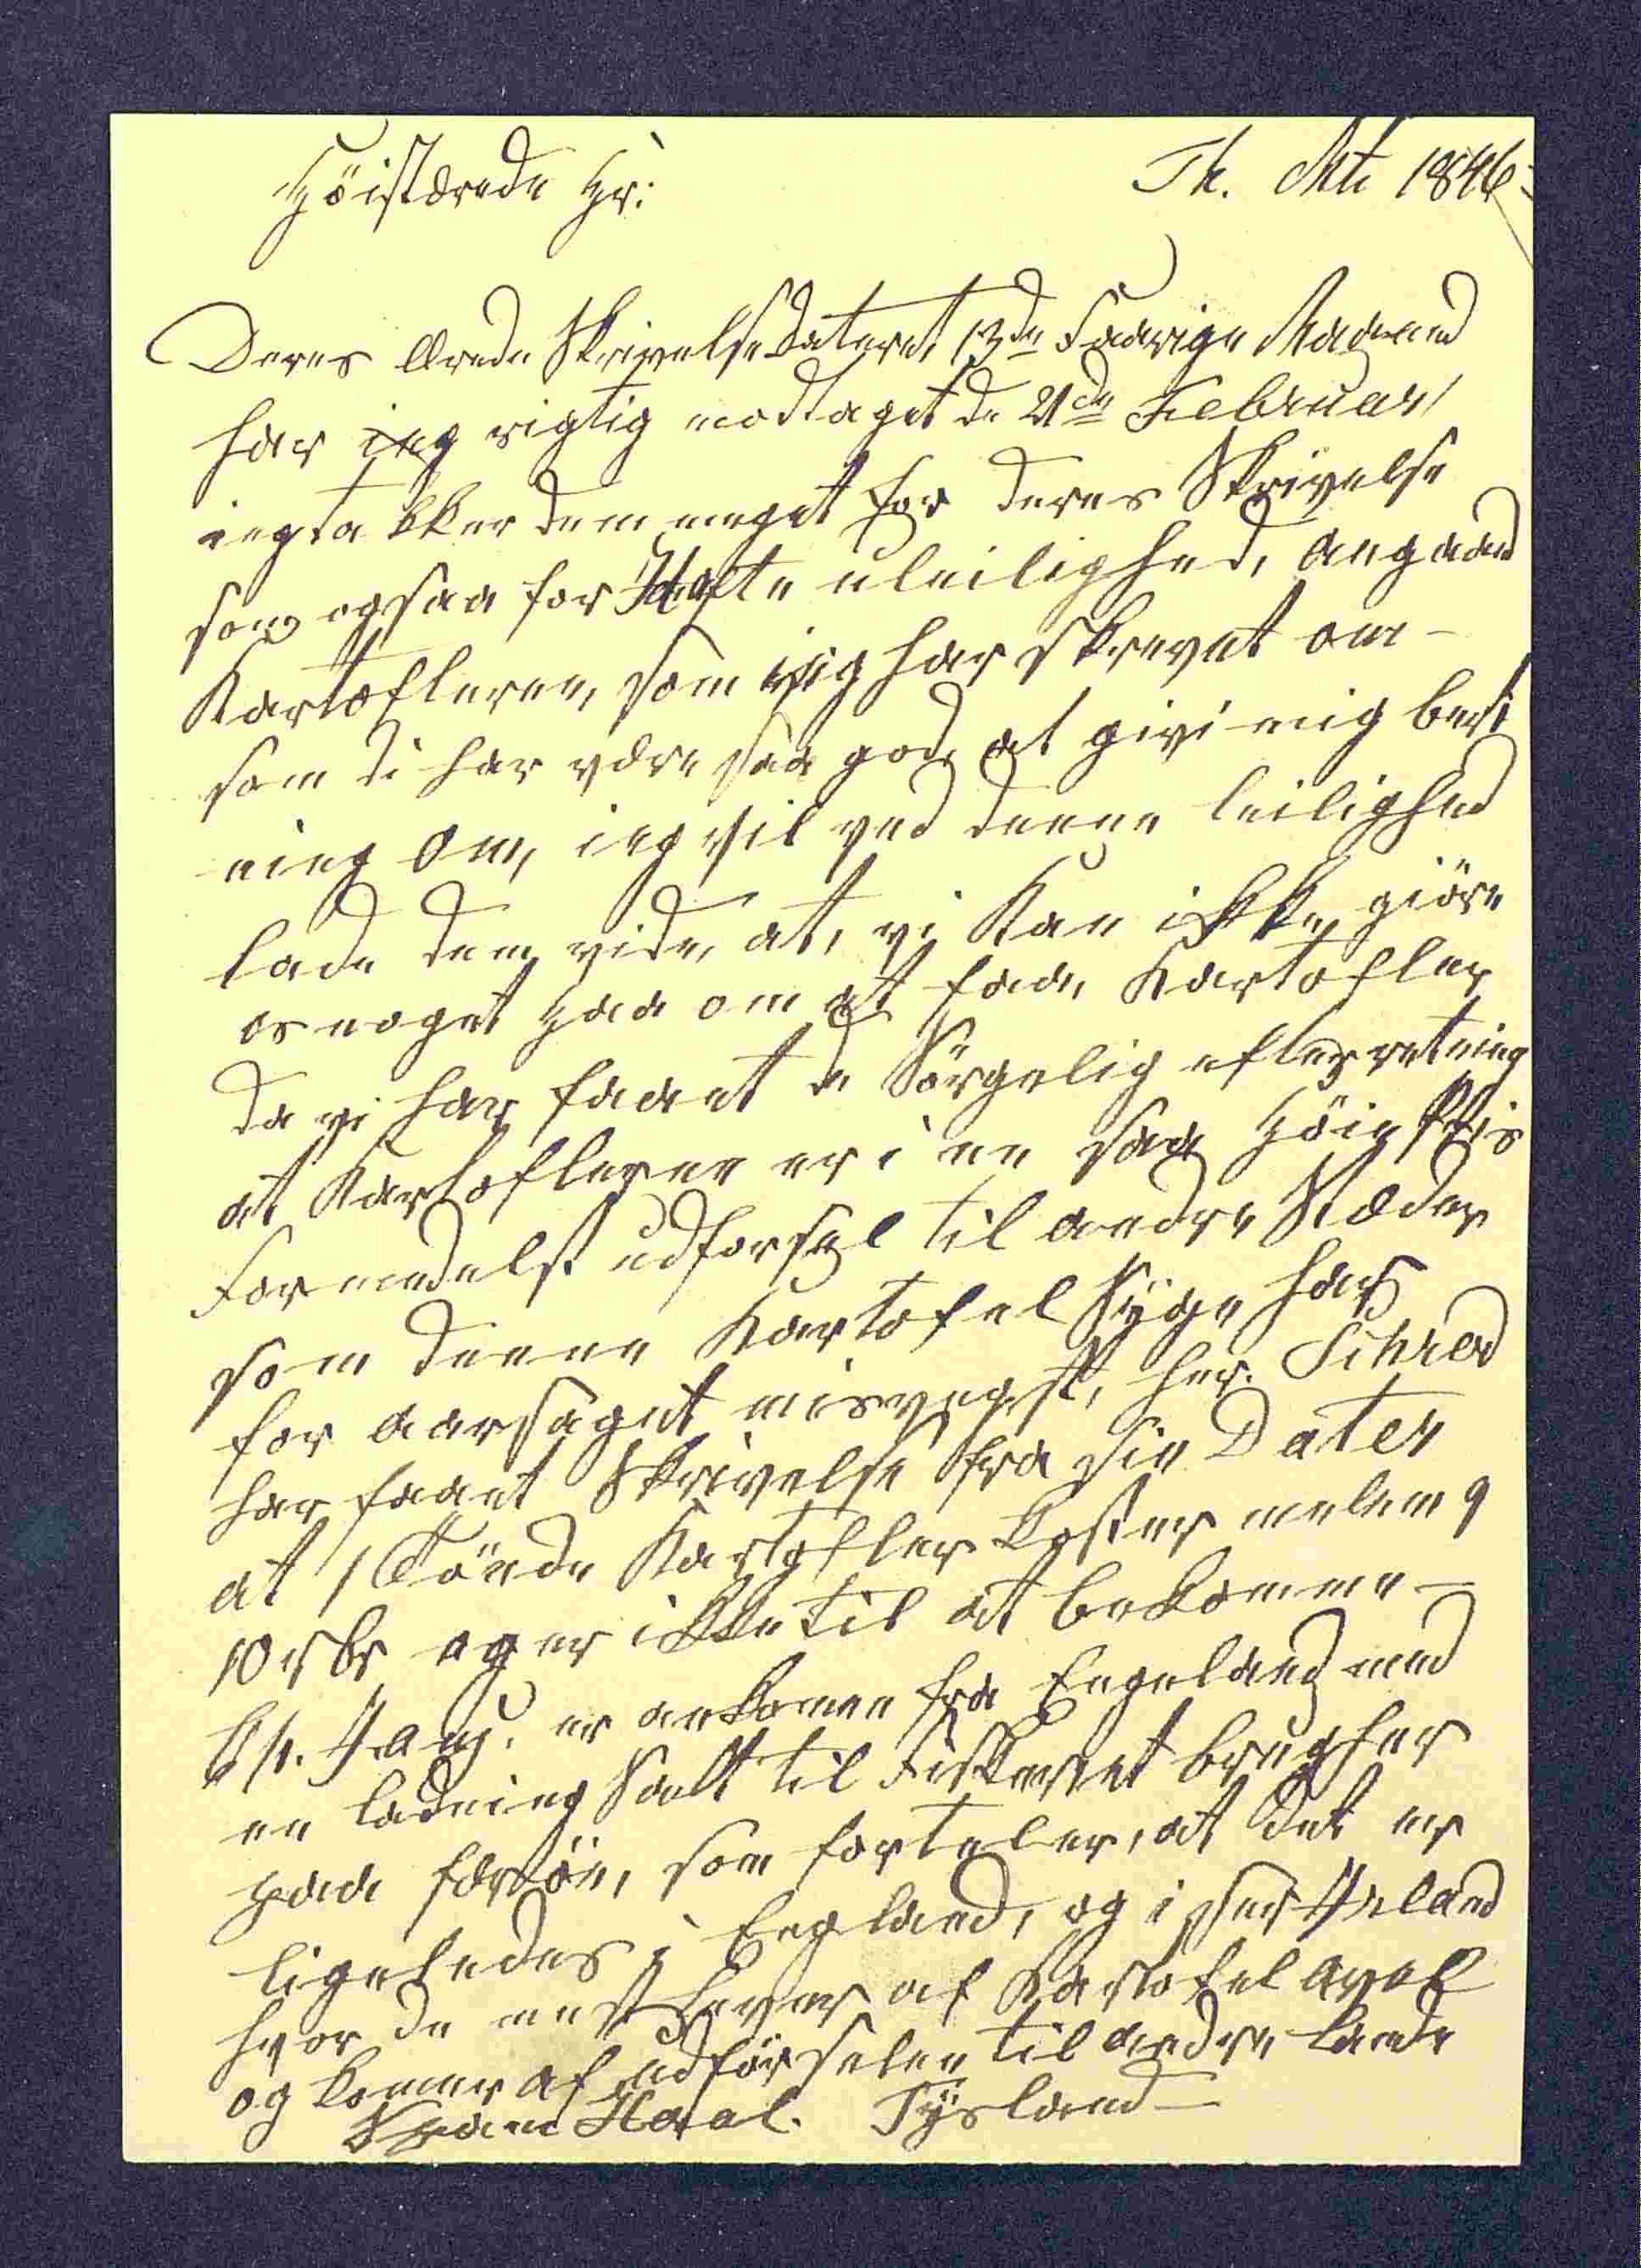 Höistærede Hr:
Th. 1846
Deres ærede Skrivelse Dateret 13de Foorige Maaned
har ieg rigtig modtaget de 21de Februar
ieg takker dem meget for deres Skrivelse
som ogsaa for Hafte uleilighed, angaaend
Kartofleren, som ieg har skrevet om -
som di har være saa god at givi mig beret
ning om, ieg vil ved denne leilighed
lade dem vide, at, vi kan ikke giöre
os noget haa om at faae Kartofler
da vi har faaet de Sörgelig efterretning
at Kartofleren er i en saa höie Pris
formedelst udforsel til andre Stæder
som denne Kartofel Syge har
foraarsaget misvegst, her. Schrod
har faaet Skrivelse fra sin Dater
at 1 Tönde Kartofler koster melem 9
10 rbr og er ikke til at bekomme -
er ankomen fra Engeland med
en ladning Salt til Fiskeriet brug her
paa færöe, som forteler, at det er
ligeledes i England, og i ser Irland
hvor de mest lever af Kartofel avel
og komer af udförselen til andre lande
Tysland -